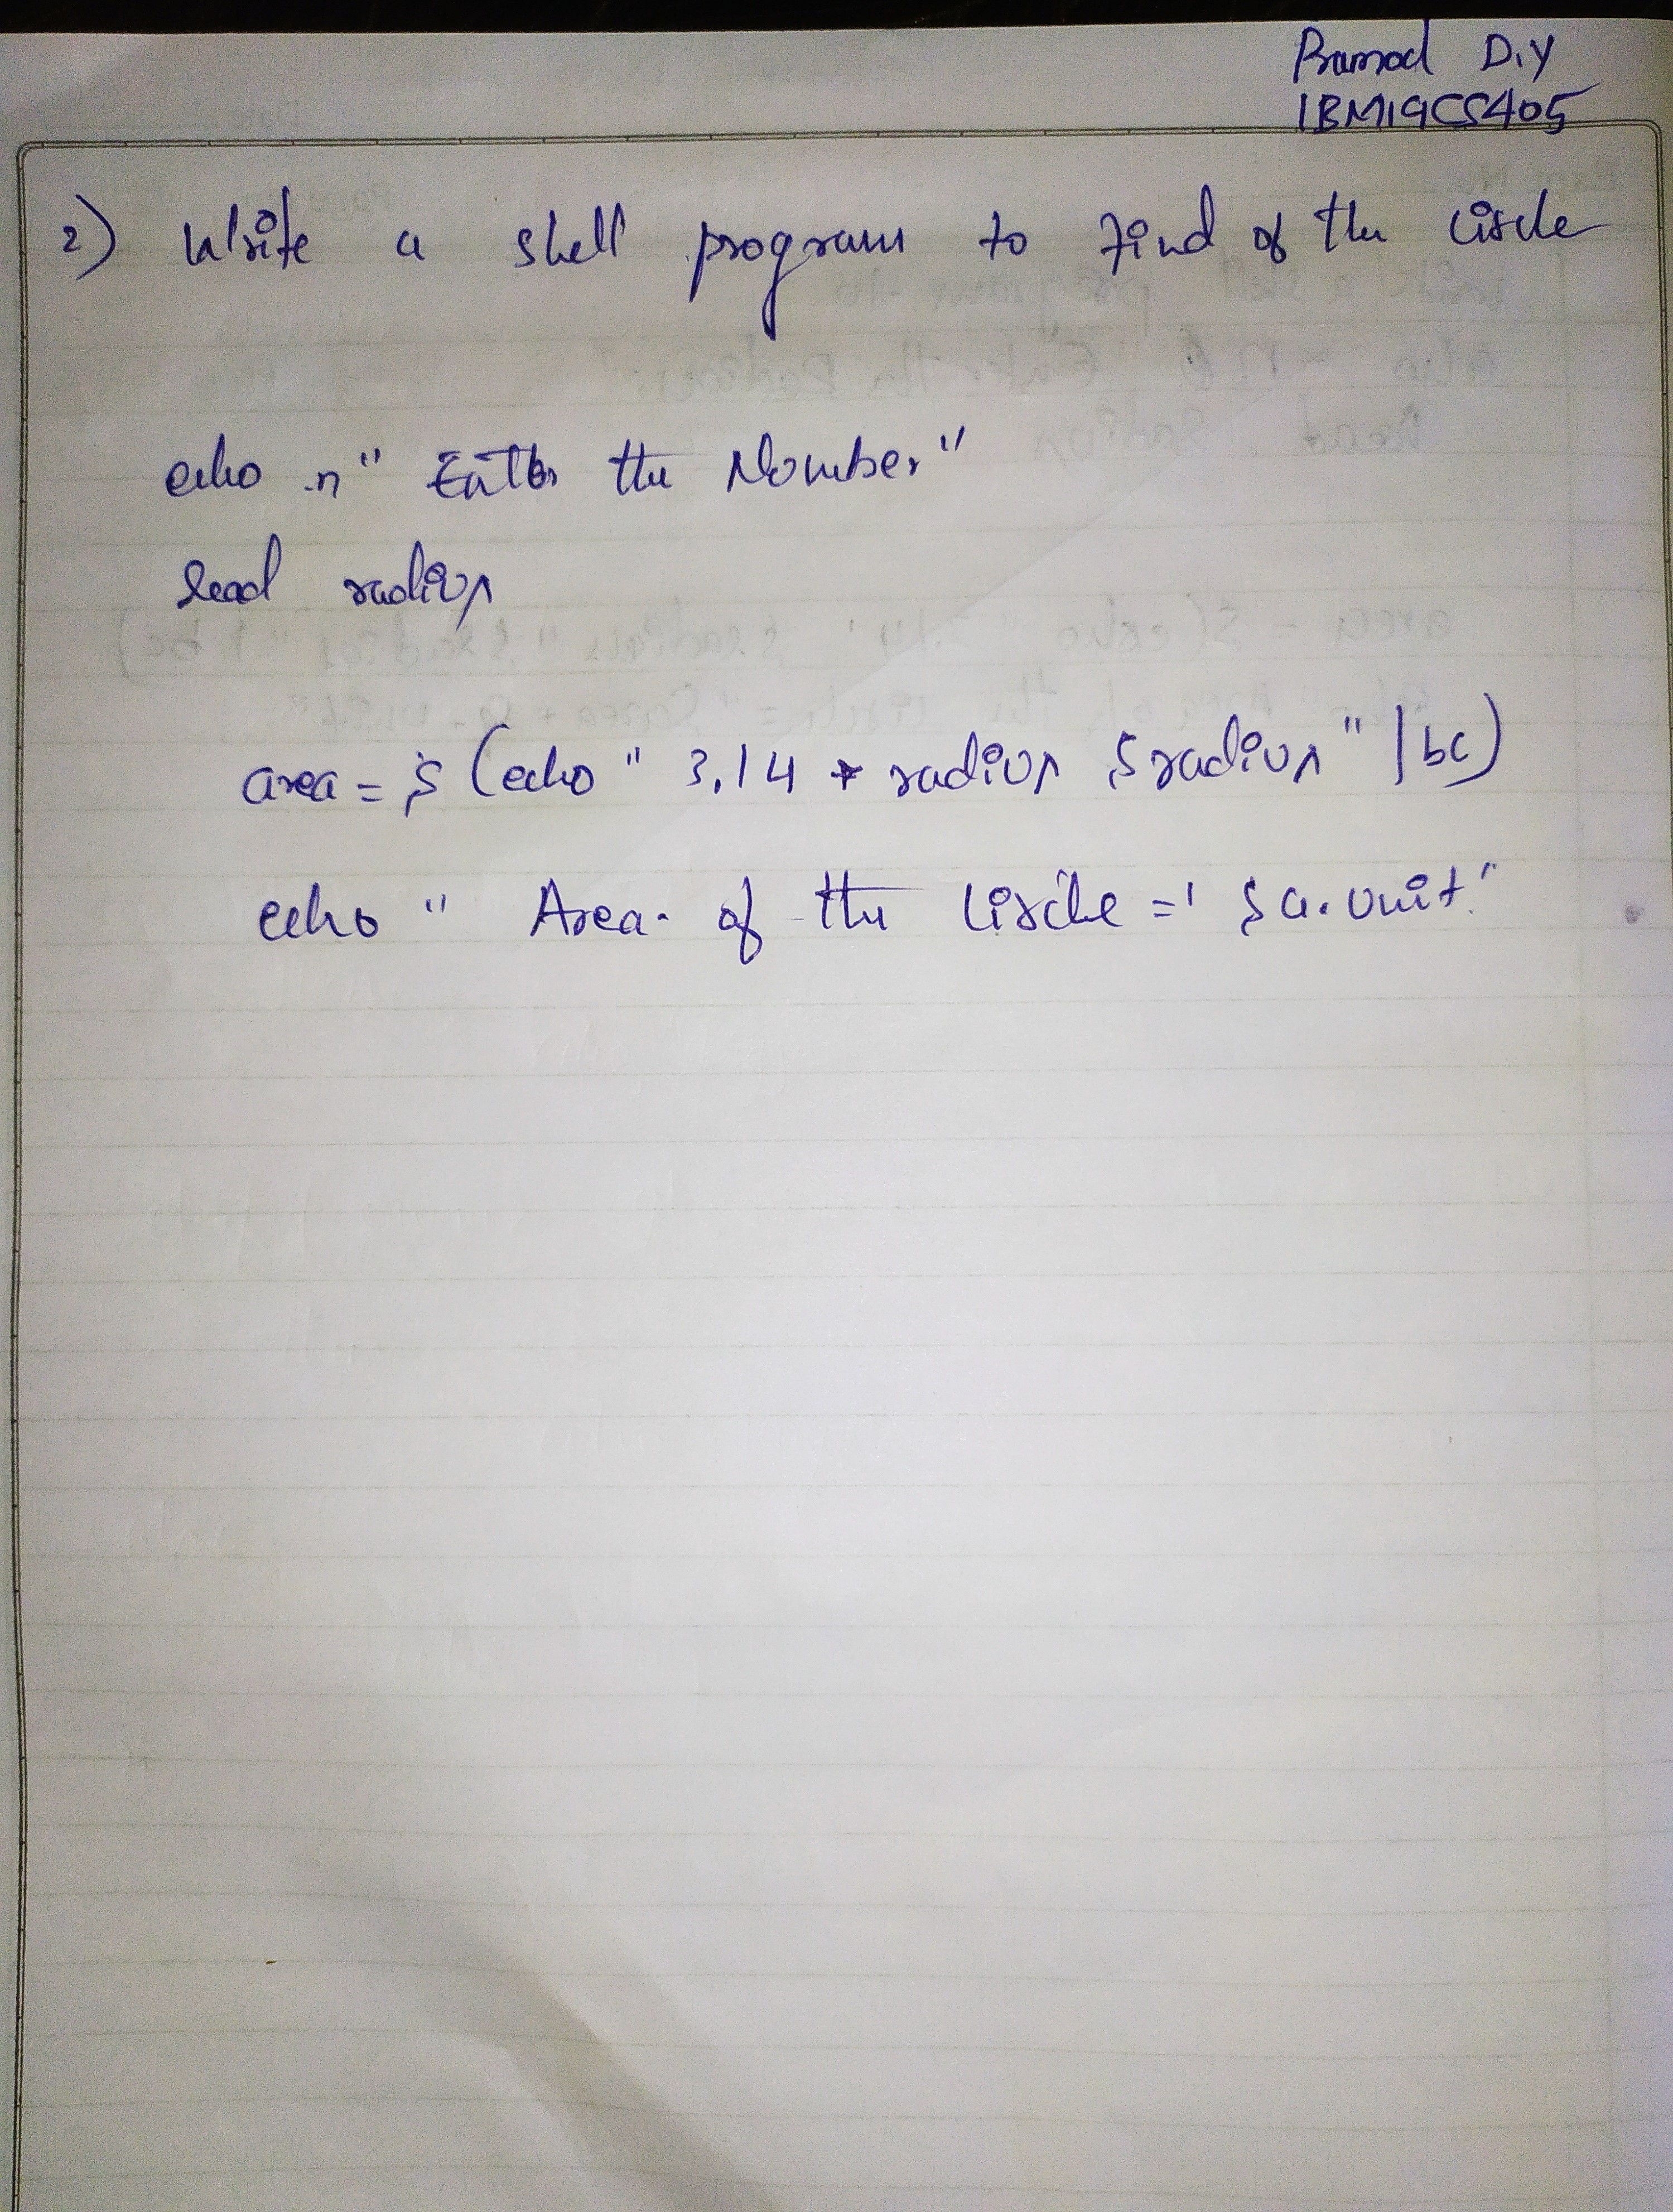 Pramod D.Y
1BM19CS405
2) Write a shell program to find of the circle
echo -n " Enter the Number "
read radius
area = $ (echo " 3.14 * radius $radius " | bc)
echo " Area of the circle =' $ a. unit "